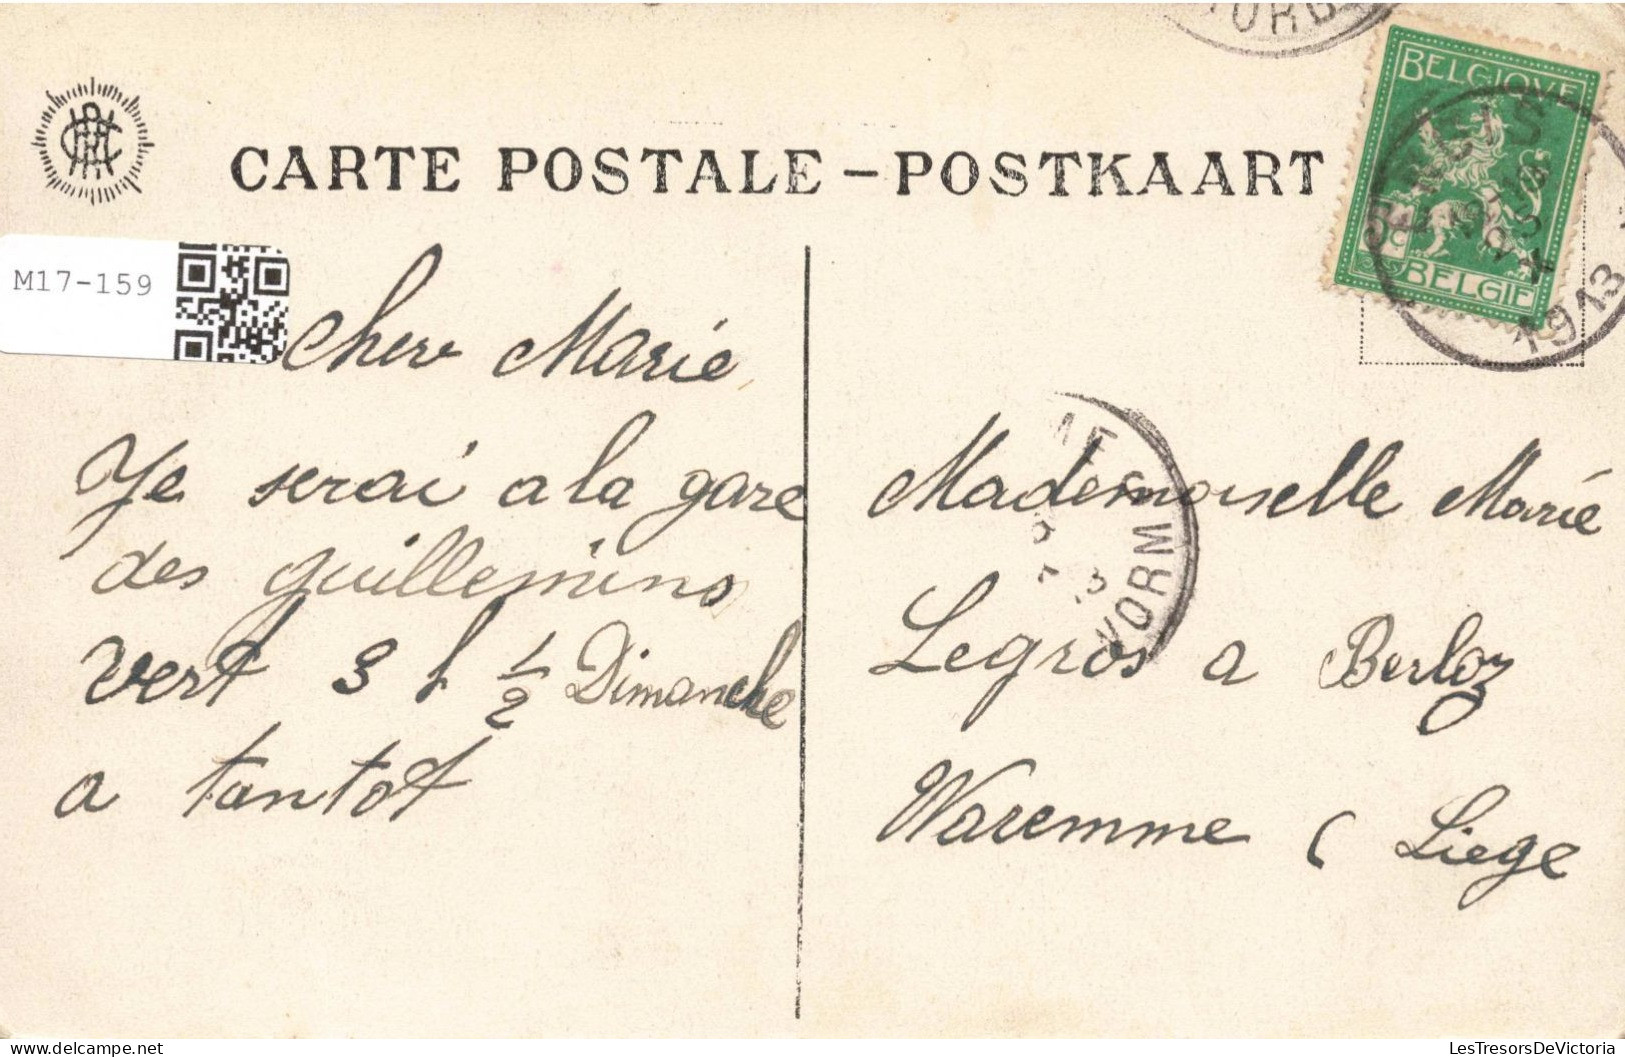 CARTE POSTALE – POSTKAART
BELGIQUE
BELGIE
1913
M17-159
Cher Marie
Je serai a la gare
des guillemins
vert 3 h 1/2 Dimanche
a tantot
Mademoiselle Marie
Legros a Berloz
Waremme ( Liege
WORM
LesTresorsDeVictoria